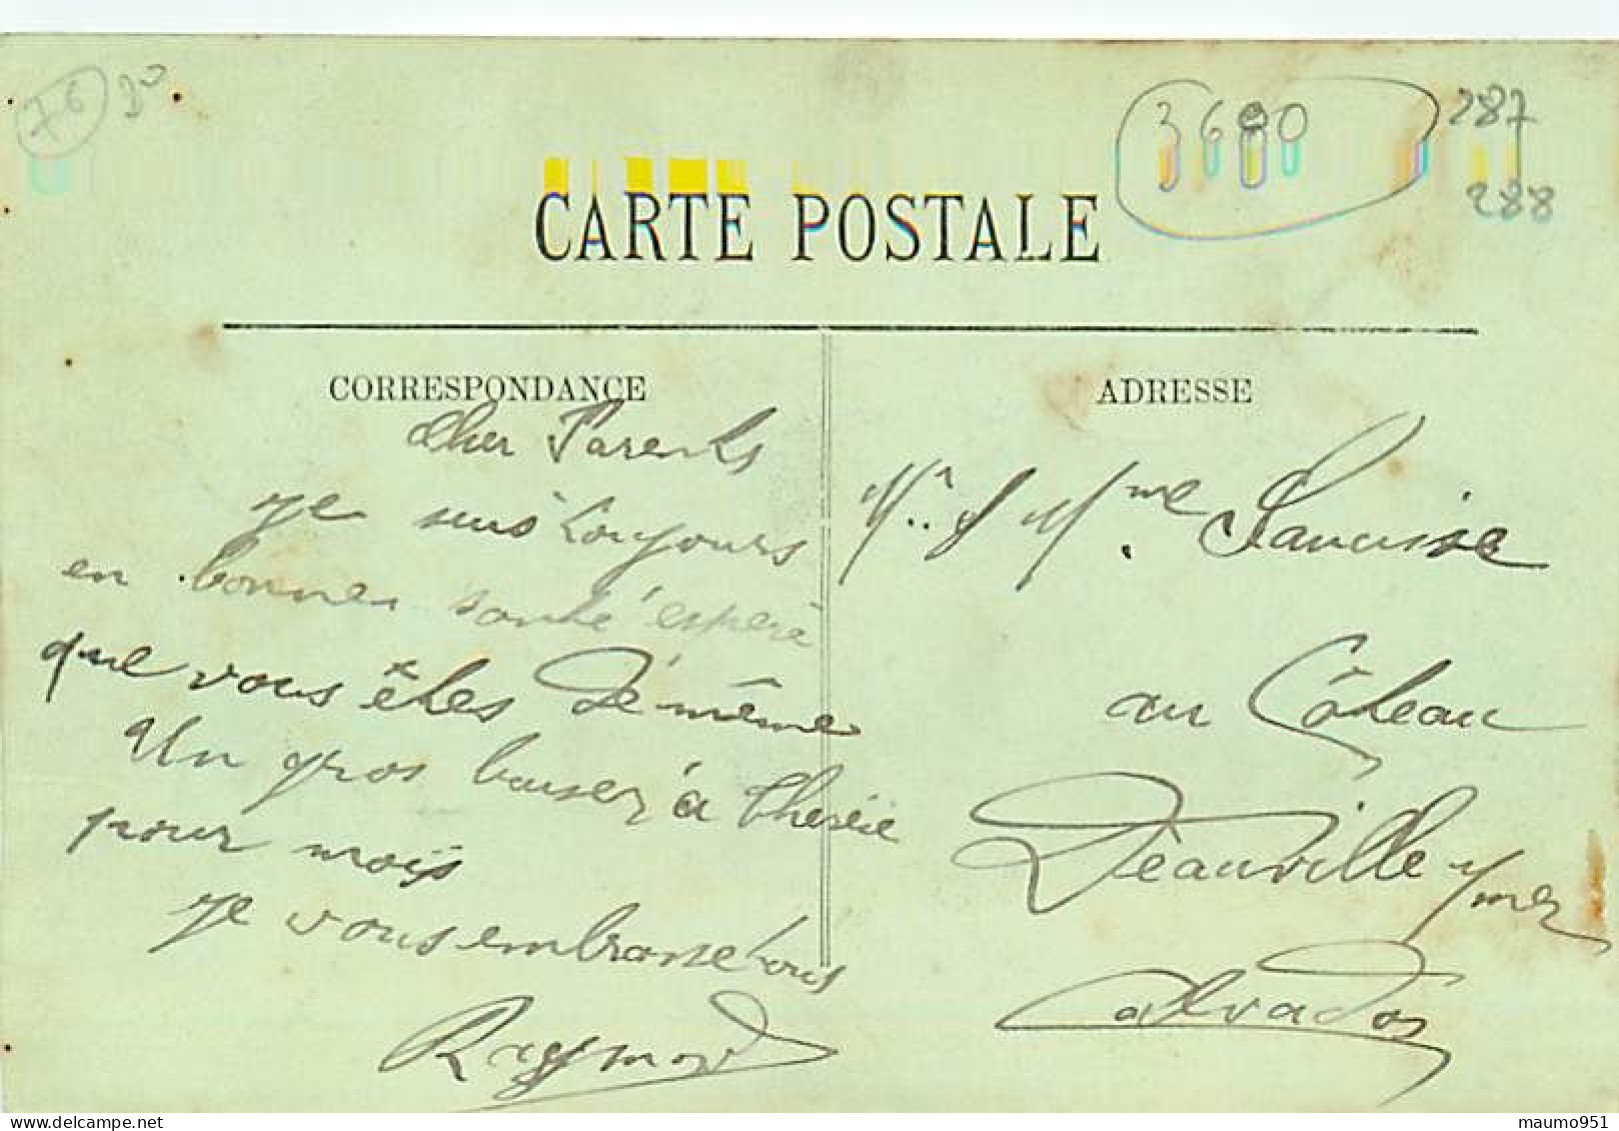 76
3680
287
288
CARTE POSTALE
CORRESPONDANCE
Cher Parents
je suis toujours
en bonnes santé espère
que vous êtes de même
Un gros baiser à Therèse
pour mois
Je vous embrasse tous
Raymond
ADRESSE
Mr & Mme
au Côteau
Deauville s/mer
Calvados
maumo951